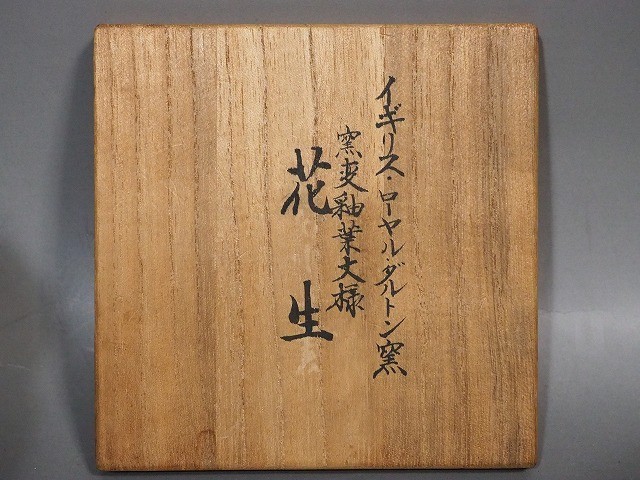 イギリス・ローヤル・ダルトン窯
窯変釉葉文様
花生